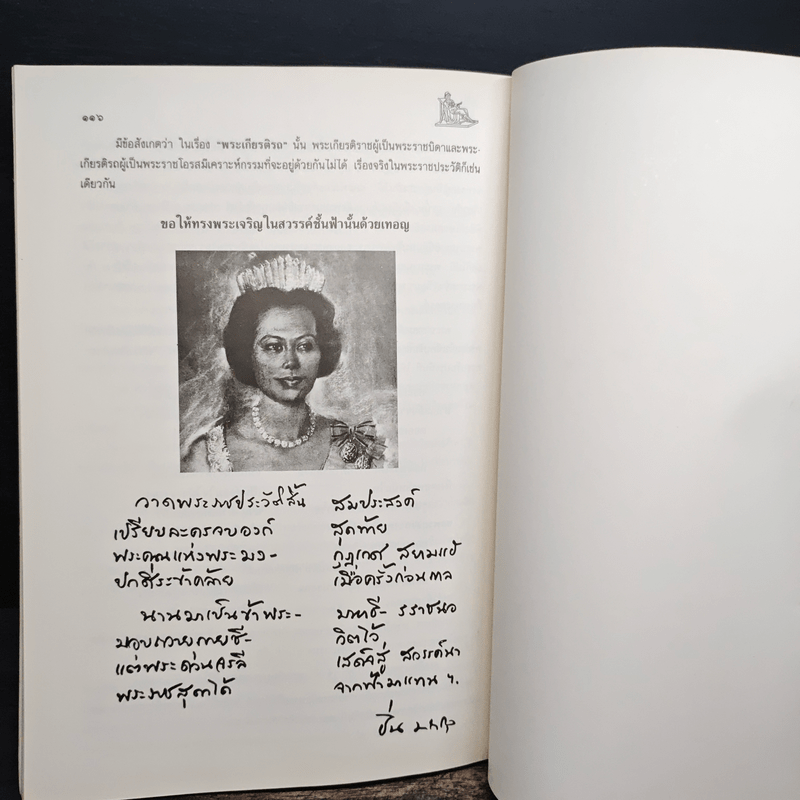 ๑๑๖
มีข้อสังเกตว่า ในเรื่อง "พระเกียรติรถ" นั้น พระเกียรติราชผู้เป็นพระราชบิดาและพระ-
เกียรติรถผู้เป็นพระราชโอรสมีเคราะห์กรรมที่จะอยู่ด้วยกันไม่ได้ เรื่องจริงในพระราชประวัติก็เช่น
เดียวกัน
ขอให้ทรงพระเจริญในสวรรค์ชั้นฟ้านั้นด้วยเทอญ
วาดพระราชประวัติสิ้น สมประสงค์
เปรียบละครจบองก์ สุดท้าย
พระคุณแห่งพระมง- กุฎเกศ สยามแฮ
ปกศีระข้าคล้าย เมื่อครั้งก่อนกาล
นานมาเป็นข้าพระ-
มอบถวายกายชี- วิตไว้
แต่พระด่วน เสด็จสู่ สวรรค์นา
พระราชสุดาได้ จากฟ้ามาแทน ฯ.